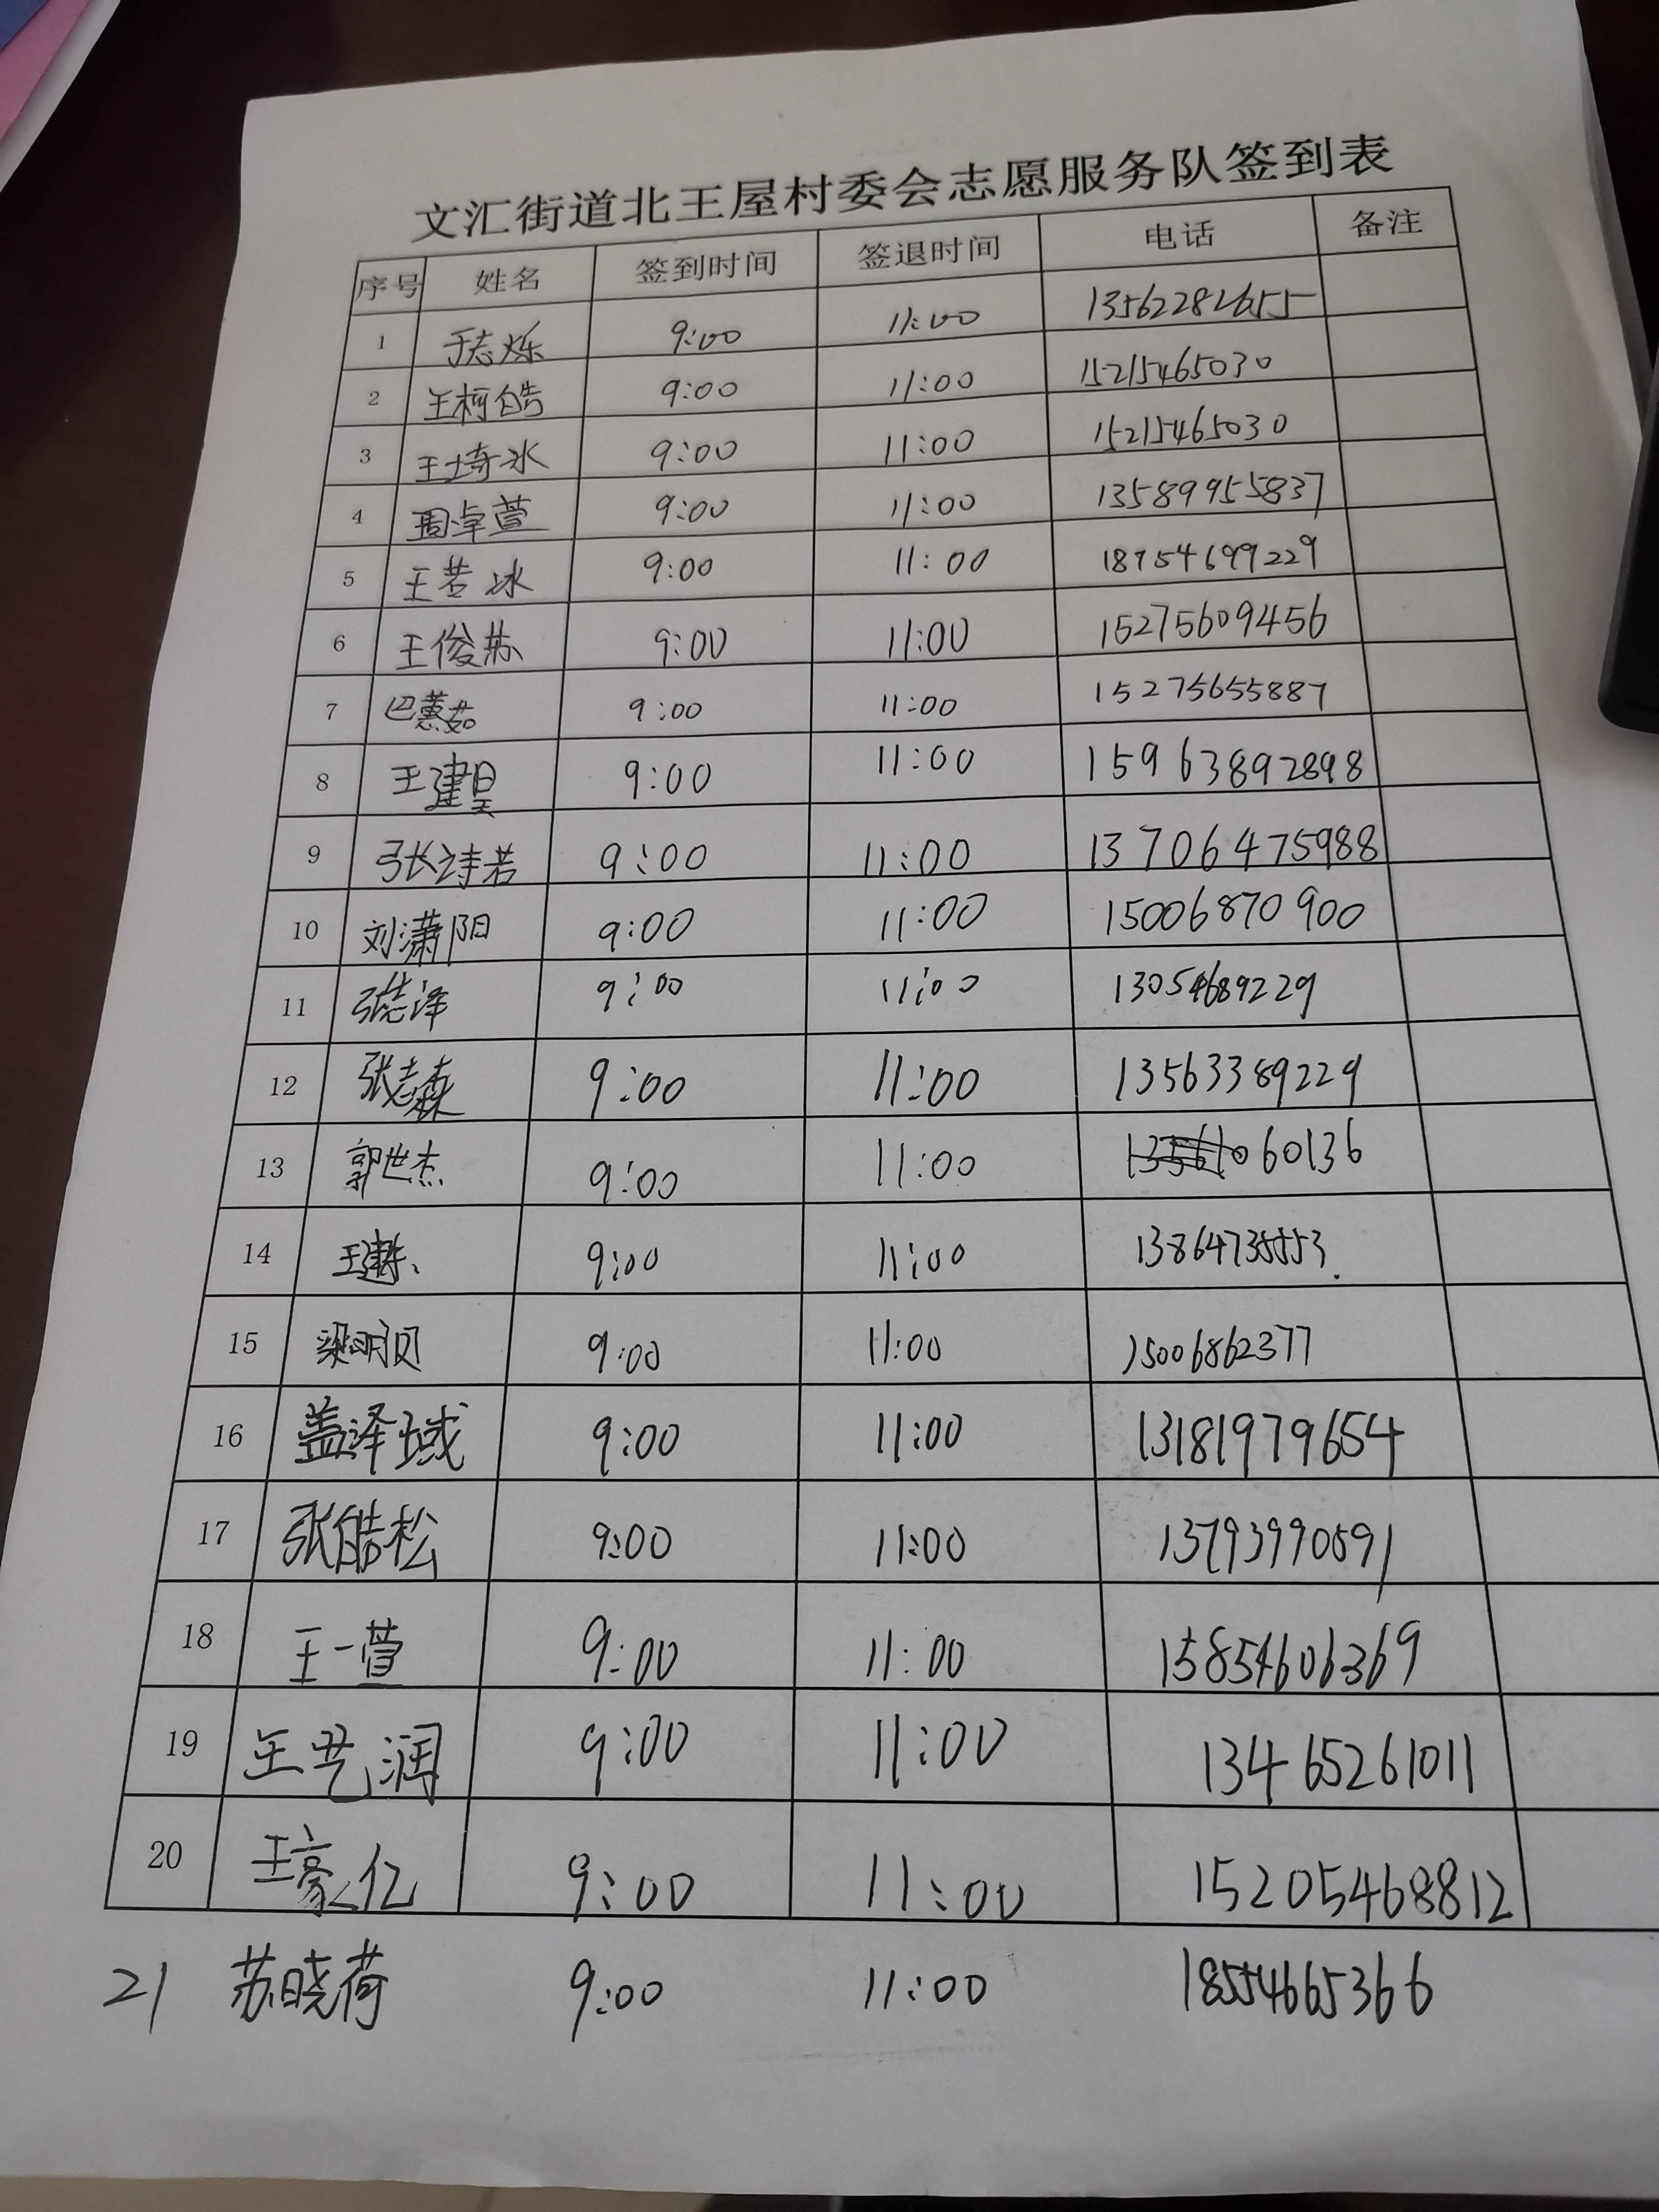 文汇街道北王屋村委会志愿服务队签到表
序号 姓名 签到时间 签退时间 电话 备注
1 于志烁 9:00 11:00
2 王柯皓 9:00 11:00 15215465030
3 王埼冰 9:00 11:00 15215465030
4 周卓萱 9:00 11:00 13589955837
5 王若冰 9:00 11:00 18754699229
6 王俊苏 9:00 11:00 15275609456
7 巴蕙茹 9:00 11:00 15275655887
8 王建昊 9:00 11:00 15963892898
9 张诗若 9:00 11:00 13706475988
10 刘潇阳 9:00 11:00 15006870900
11 9:00 11:00 13054689229
12 张志森 9:00 11:00 13563389229
13 郭世杰 9:00 11:00 060136
14 9:00 11:00 13864735553
15 梁明贝 9:00 11:00 15006862377
16 盖泽域 9:00 11:00 13181979654
17 张皓松 9:00 11:00 13793990591
18 王一萱 9:00 11:00 15854606369
19 王艺润 9:00 11:00 13465261011
20 王豪亿 9:00 11:00 15205468812
21 苏晓荷 9:00 11:00 18554665366